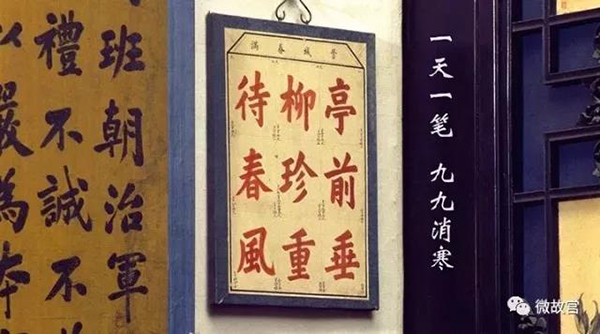 班朝治軍
禮不誠不
嚴為本
管城春滿
亭前垂
柳珍重
待春風
一天一笔 九九消寒
微故宫